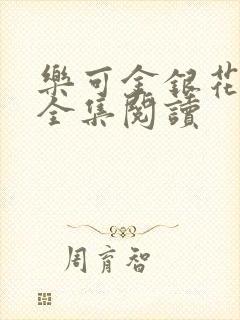 樂可金銀花
全集閱讀
周育智